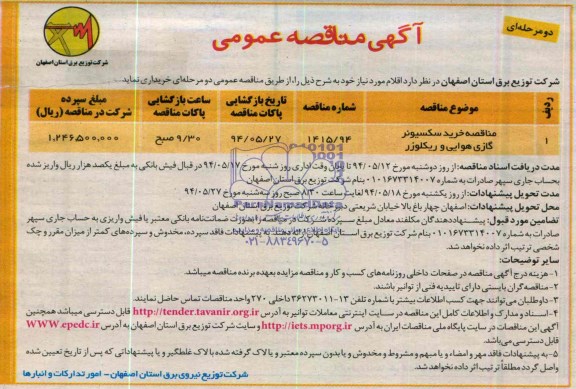 دو مرحله‌ای
آگهی مناقصه عمومی
شرکت توزیع برق استان اصفهان
شرکت توزیع برق استان اصفهان در نظر دارد اقلام مورد نیاز خود به شرح ذیل را، از طریق مناقصه عمومی دو مرحله‌ای خریداری نماید.
ردیف
موضوع مناقصه
شماره مناقصه
تاریخ بازگشایی پاکات مناقصه
ساعت بازگشایی پاکات مناقصه
مبلغ سپرده شرکت در مناقصه (ریال)
۱
مناقصه خرید سکسیونر گازی هوایی و ریکلوزر
۱۴۱۵/۹۴
۹۴/۰۵/۲۷
۹/۳۰ صبح
۱،۲۴۶،۵۰۰،۰۰۰
مدت دریافت اسناد مناقصه: از روز دوشنبه مورخ ۹۴/۰۵/۱۲ تا پایان وقت اداری روز شنبه مورخ ۹۴/۰۵/۱۷ در قبال فیش بانکی به مبلغ یکصد هزار ریال واریز شده
بحساب جاری سپهر صادرات به شماره ۰۱۰۱۶۷۳۳۱۴۰۰۷ بنام شرکت توزیع برق استان اصفهان
مدت تحویل پیشنهادات: از روز یکشنبه مورخ ۹۴/۰۵/۱۸ لغایت ساعت ۸/۳۰ صبح روز سه‌شنبه مورخ ۹۴/۰۵/۲۷
محل تحویل پیشنهادات: اصفهان چهارباغ بالا خیابان شریعتی شرکت توزیع برق استان اصفهان
تضامین مورد قبول: پیشنهاددهندگان مکلفند معادل مبلغ سپرده شرکت در مناقصه را بصورت ضمانت‌نامه بانکی معتبر یا فیش واریزی به حساب جاری سپهر
صادرات به شماره ۰۱۰۱۶۷۳۳۱۴۰۰۷ بنام شرکت توزیع برق استان اصفهان ارائه دهند. به پیشنهادات فاقد سپرده، مخدوش و سپرده‌های کمتر از میزان مقرر و چک
شخصی ترتیب اثر داده نخواهد شد.
۰۲۱-۸۸۳۴۹۶۷۰-۵
سایر توضیحات:
۱- هزینه درج آگهی مناقصه در صفحات داخلی روزنامه‌های کسب و کار و مناقصه مزایده بعهده برنده مناقصه میباشد.
۲- مناقصه‌گران بایستی دارای تاییدیه فنی از توانیر باشند.
۳- داوطلبان می‌توانند جهت کسب اطلاعات بیشتر با شماره تلفن ۱۳-۳۶۲۷۳۰۱۱ داخلی ۲۷۰ واحد مناقصات تماس حاصل نمایند.
۴- اسناد و مدارک و اطلاعات کامل این مناقصه در سایت اینترنتی معاملات توانیر به آدرس http://tender.tavanir.org.ir قابل دسترسی میباشد همچنین
آگهی این مناقصات در سایت پایگاه ملی مناقصات ایران به آدرس http://iets.mporg.ir و سایت شرکت توزیع برق استان اصفهان به آدرس WWW.epedc.ir
قابل دسترسی می‌باشد.
۵- به پیشنهادات فاقد مهر و امضاء و یا مبهم و مشروط و مخدوش و یا بدون سپرده معتبر و یا لاک گرفته شده با لاک غلط‌گیر و یا پیشنهاداتی که پس از تاریخ تعیین شده
واصل گردد مطلقاً ترتیب اثر داده نخواهد شد.
شرکت توزیع نیروی برق استان اصفهان - امور تدارکات و انبارها